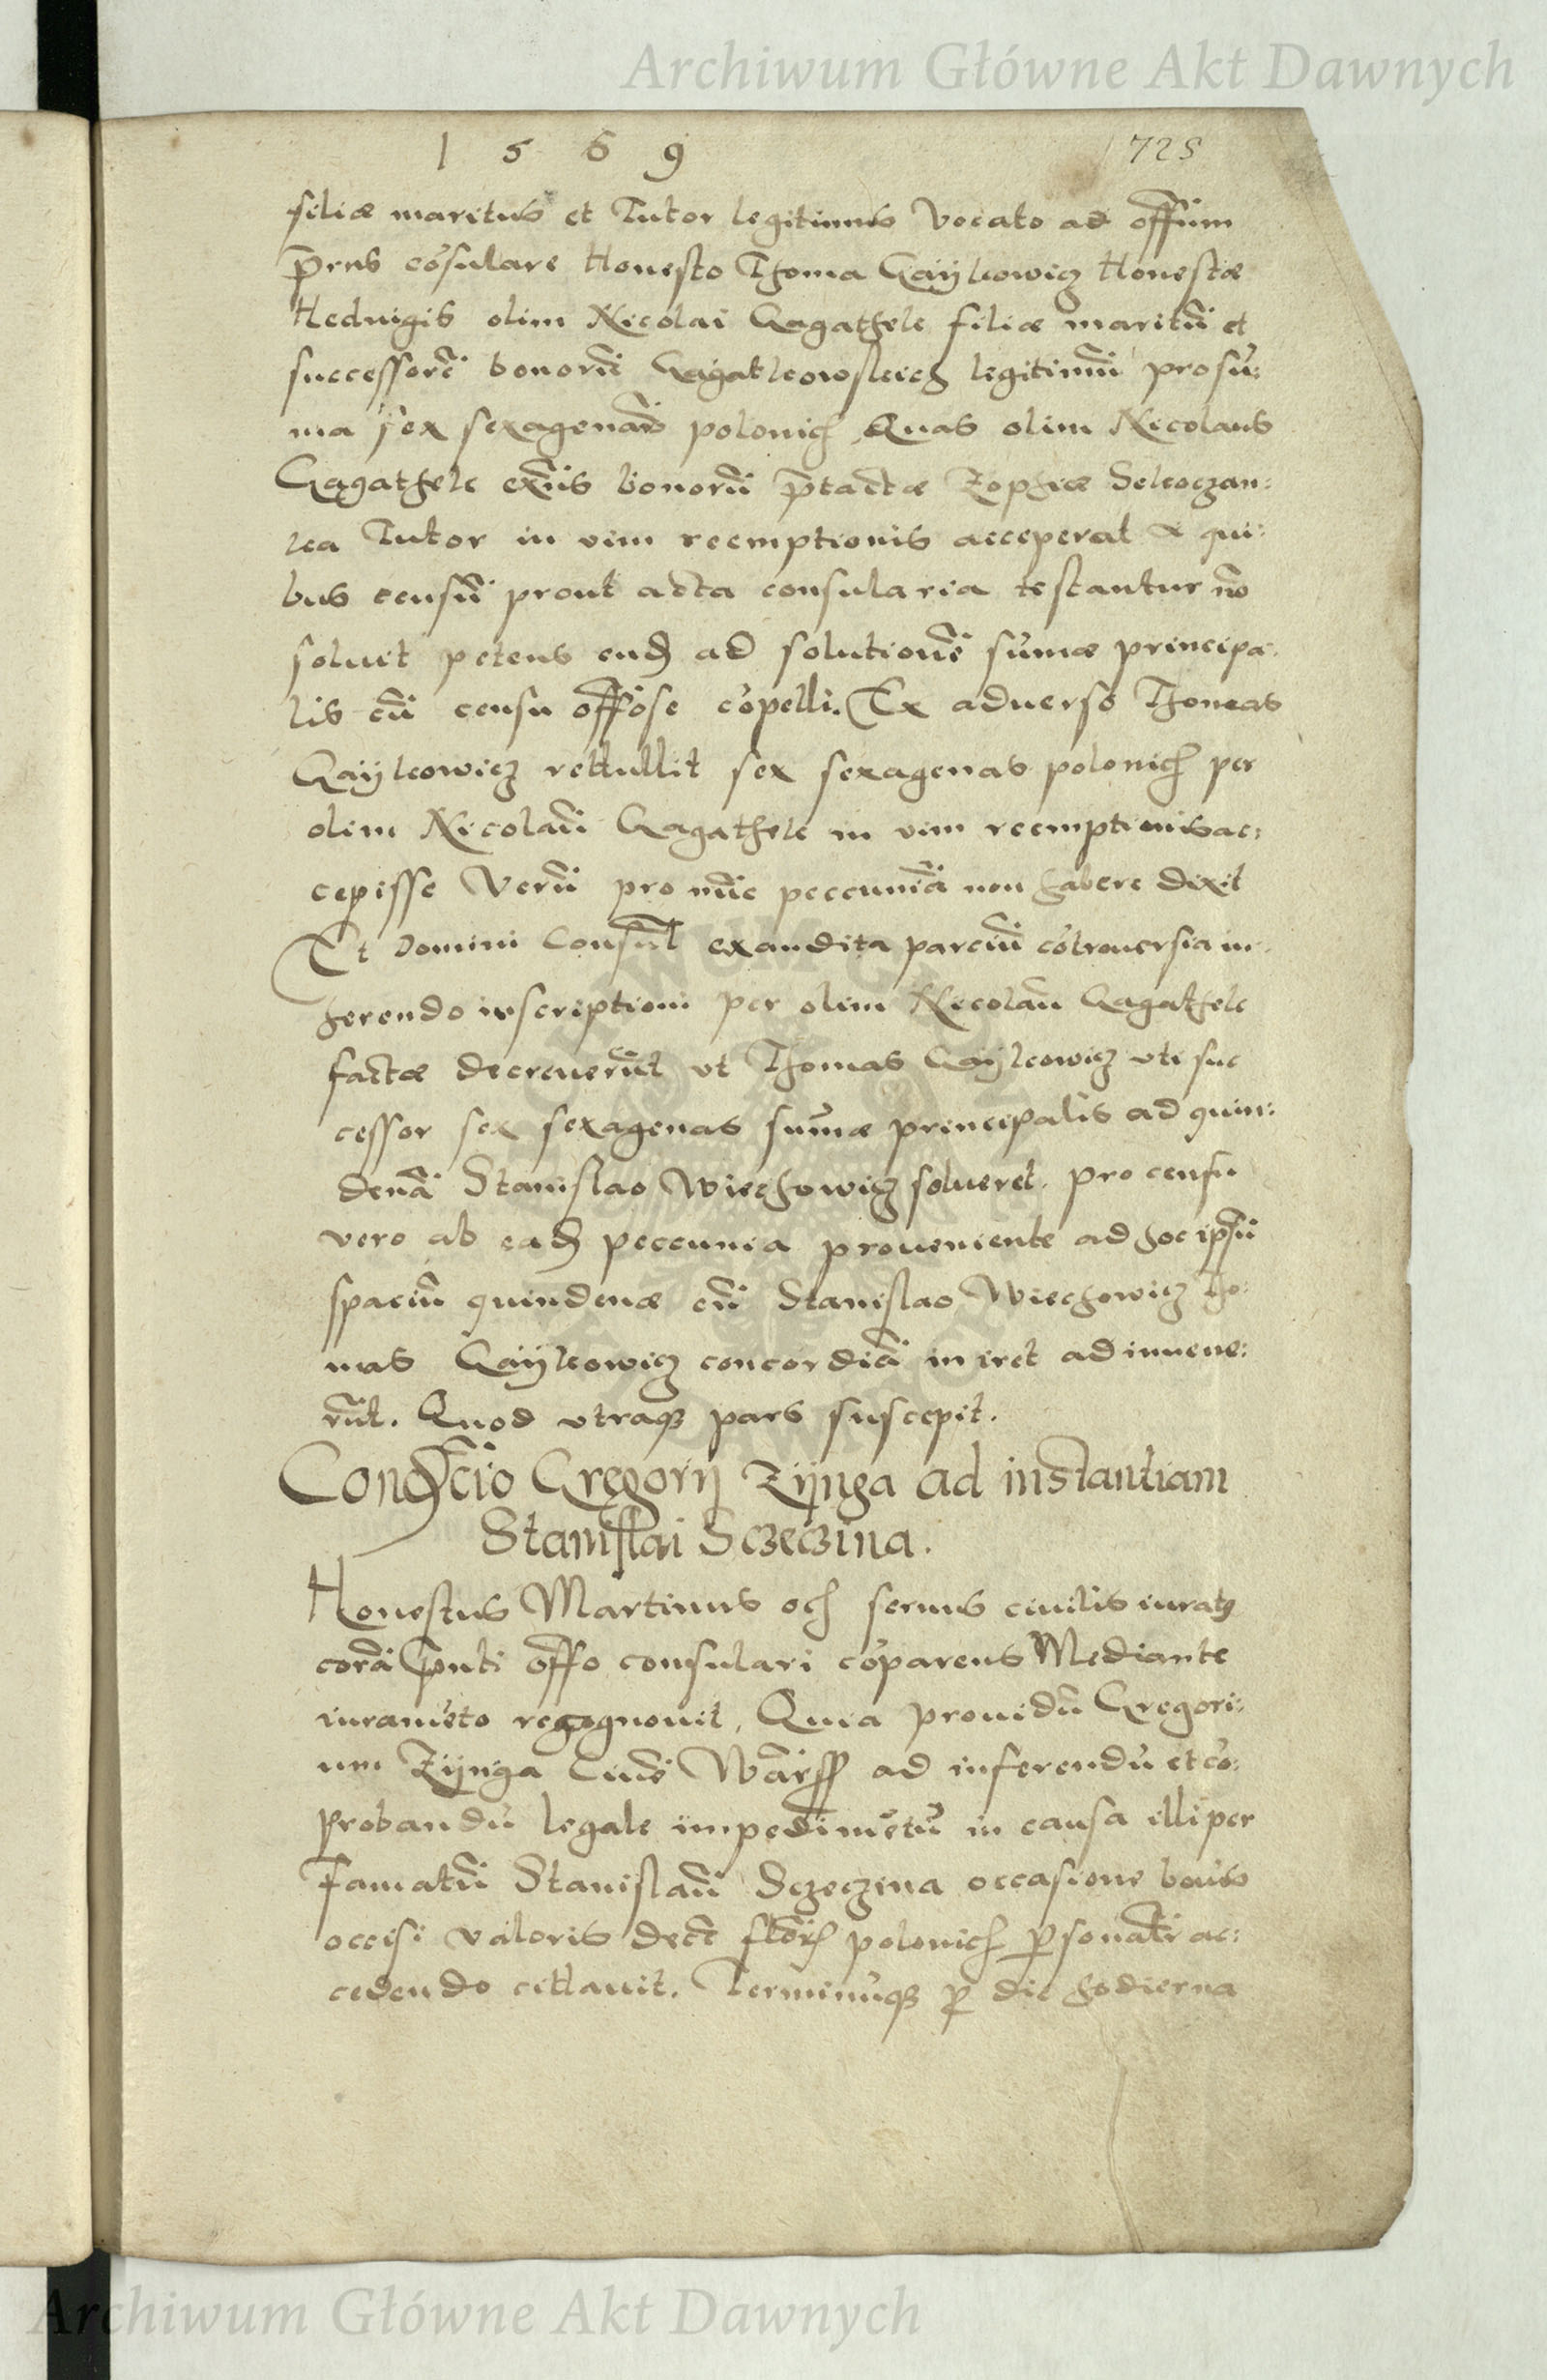 Archiwum Główne Akt Dawnych
1 5 5 9 725
filiæ maritus et Tutor legitimus Vocato ad offium
p̃rns cõsulare Honesto Thoma Gaÿkowicz Honestæ
Heduigis olim Nicolai Gagathek filiæ maritũ et
successorẽ bonorũ Gagatkowskich legitimũ pro sũ:
ma sex sexagenarũ polonich Quas olim Nicolaus
Gagathek bonorũ p̃tactæ Zophiæ
Tutor in vim reemptionis acceperat & qui:
bus censũ prout acta consularia testantur nõ
soluit petens eund ad solutionẽ sũmæ principa:
lis cũ censu offõse cõpelli. Ex aduerso Thomas
Gaÿkowicz rettullit sex sexagenas polonich per
olim Nicolaũ Gagathek in vim reemptionis ac:
cepisse Verũ pro nũc peccuniã non habere dixit
Et Domini Consul exaudita parciũ cõtrouersia in:
herendo inscriptioni per olim Nicolaũ Gagathek
factæ decreuerũt vt Thomas Gaÿkowicz vti suc
cessor sex sexagenas sumæ principalis ad quin:
denã Stanislao Wiechowicz solueret. pro censu
vero ab ead peccunia proueniente ad hoc ipsũ
spaciũ quindenæ cũ Stanislao Wiechowicz Tho:
mas Gaÿkowicz concordiã in iret ad inuene:
rũt. Quod vtraque pars suscepit.
Condẽcio Gregorij Zÿnga ad instantiam
Stanislai Sczeczina.
Honestus Martinus och seruus ciuilis iuratus
corã p̃nti offo consulari cõparens Mediante
iuramẽto regognouit, Quia prouidũ Gregori:
um Zÿnga Ciuẽ Warss ad inferendũ et cõ:
probandũ legale impedimẽtũ in causa illi per
Famatũ Stanislaũ Sczeczina occasione bouis
occisi valoris decẽ flor polonich p̱sonatr ac:
cedendo cittauit. Terminũque p̱ die hodierna
Archiwum Główne Akt Dawnych